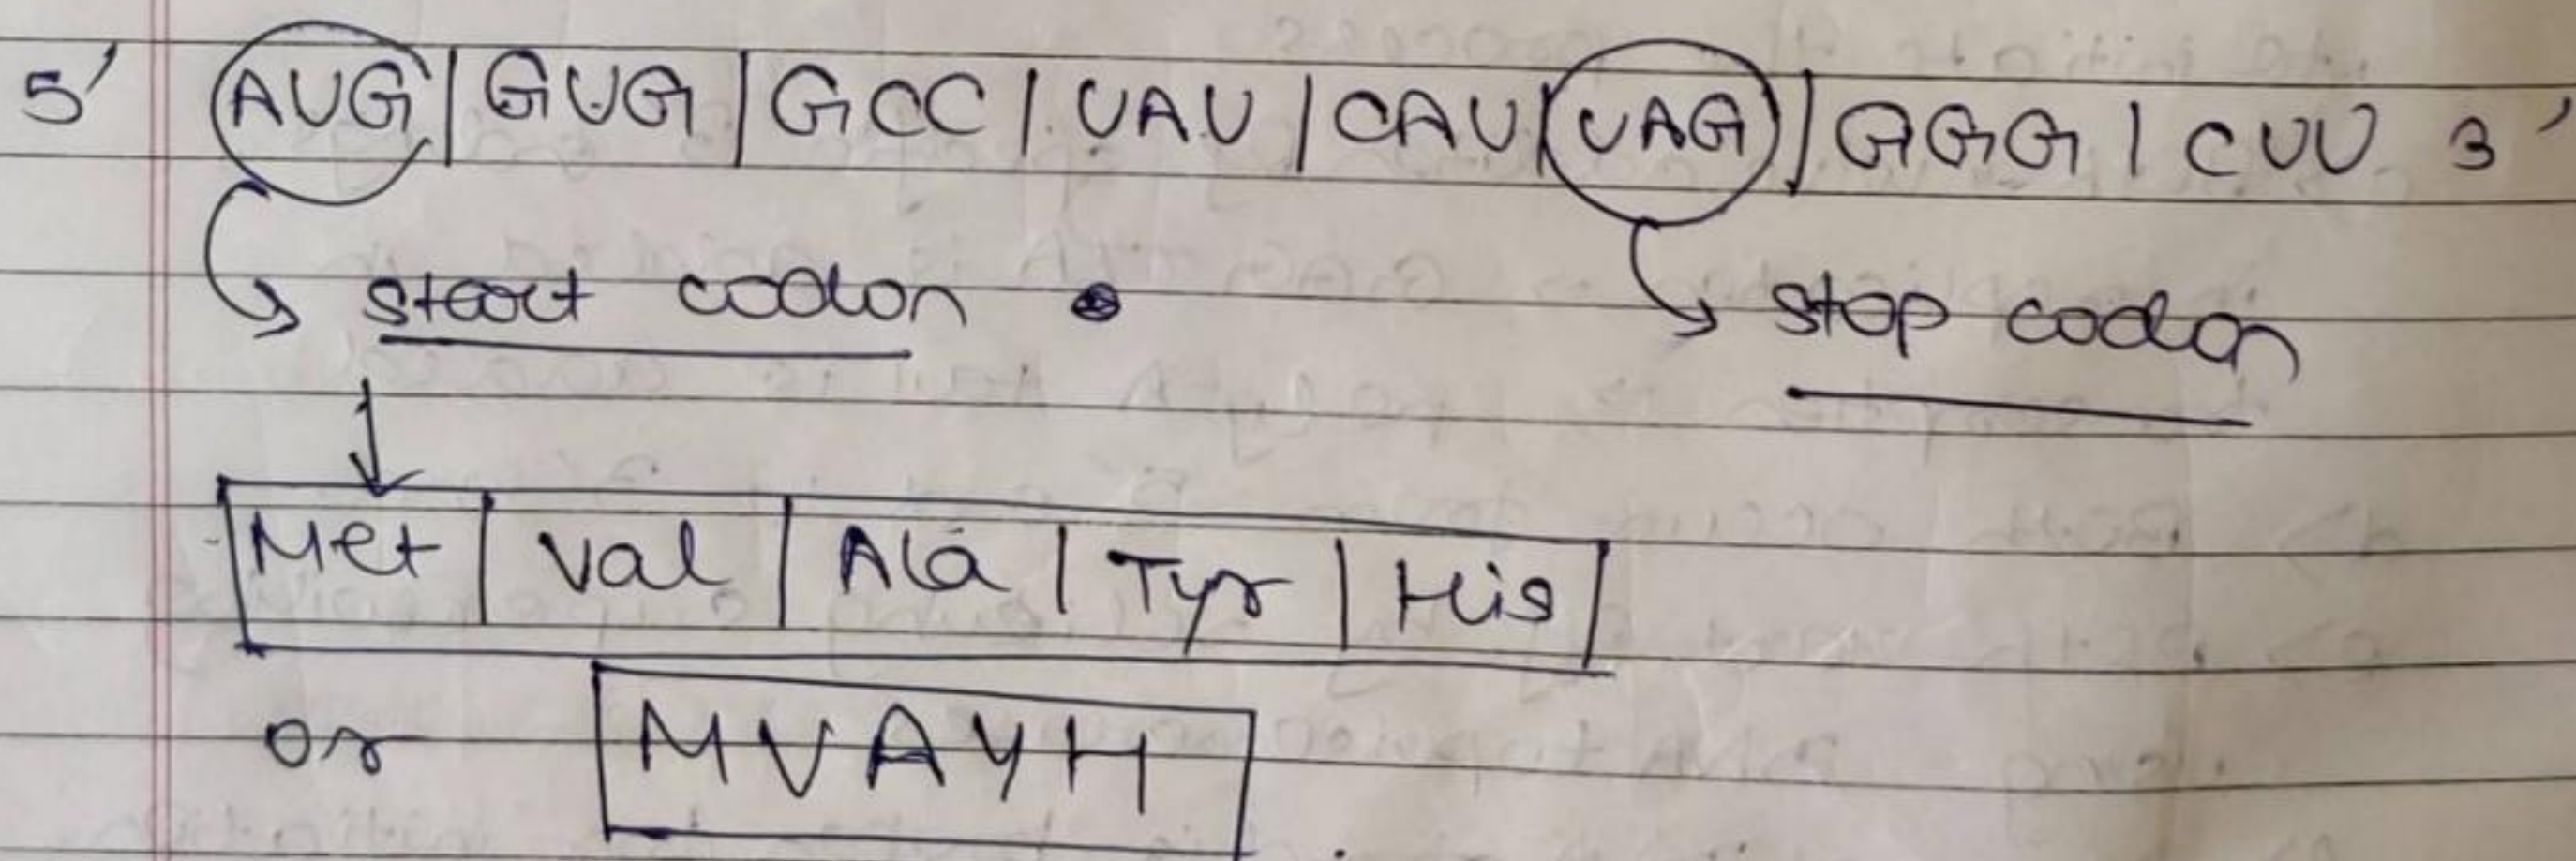 5' AUG | GUG | GCC | UAU | CAU | UAG | GGG | CUU 3'
start codon
stop codon
Met | Val | Ala | Tyr | His
or MVAYH